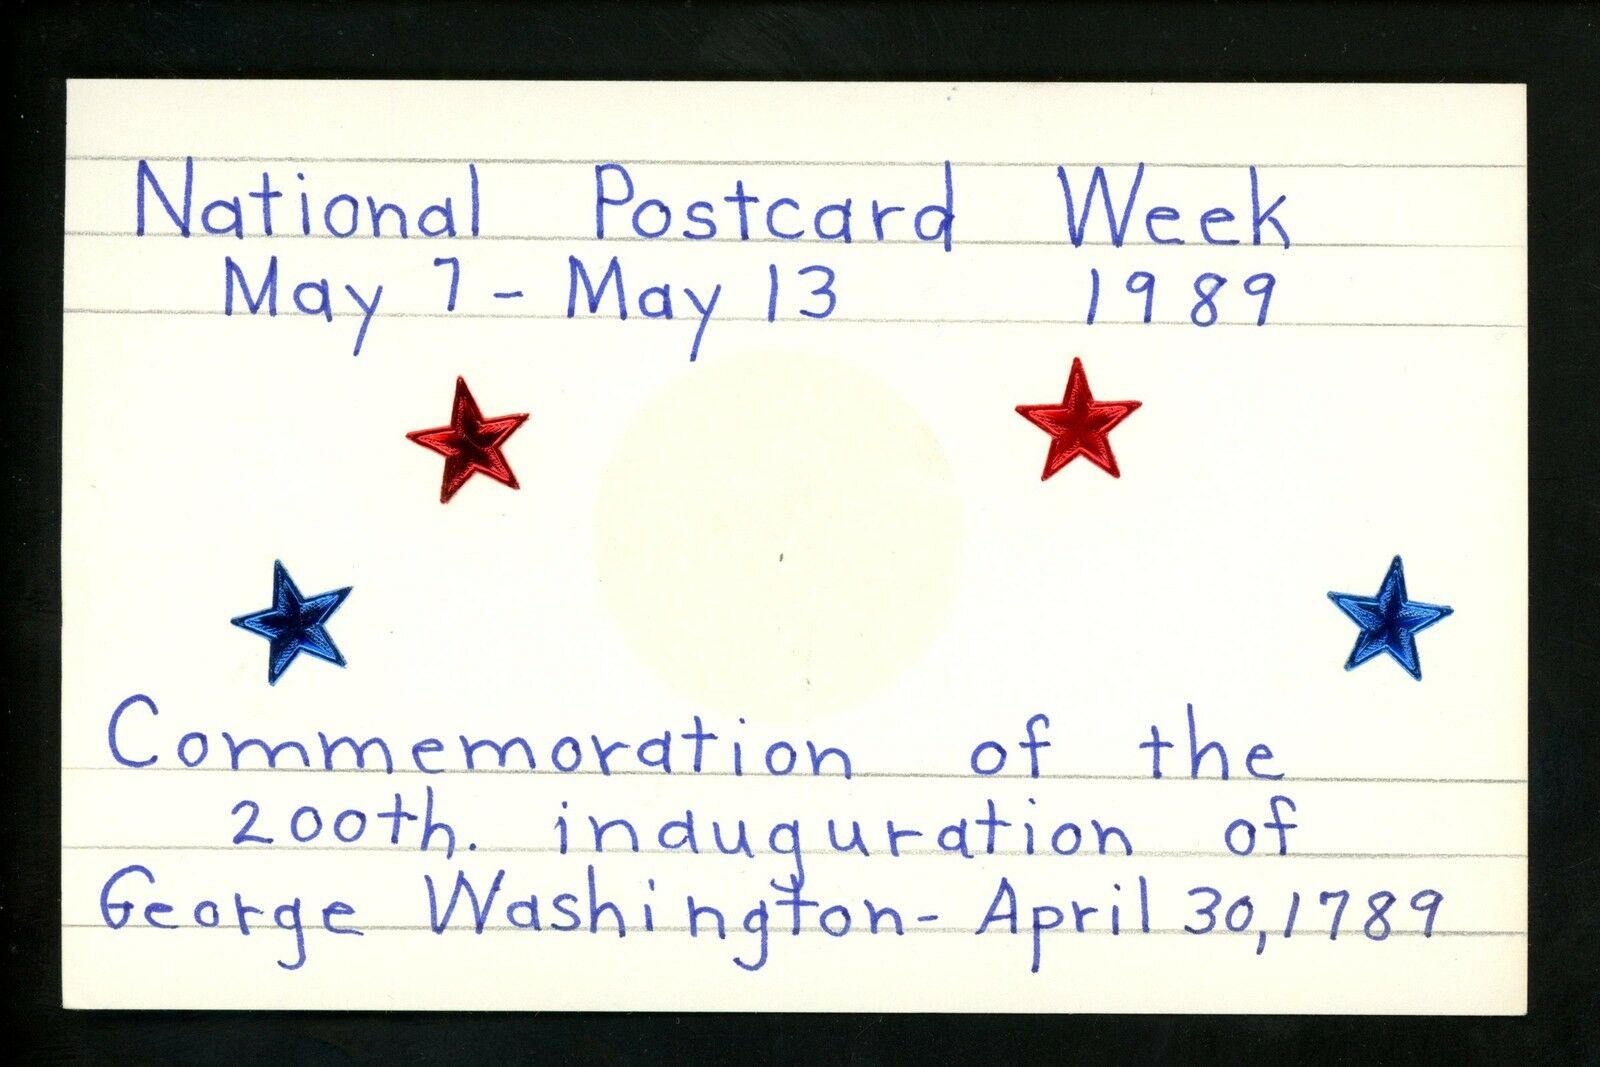 National Postcard Week
May 7 - May 13 1989
Commemoration of the
200th. induguration of
George Washington- April 30, 1789